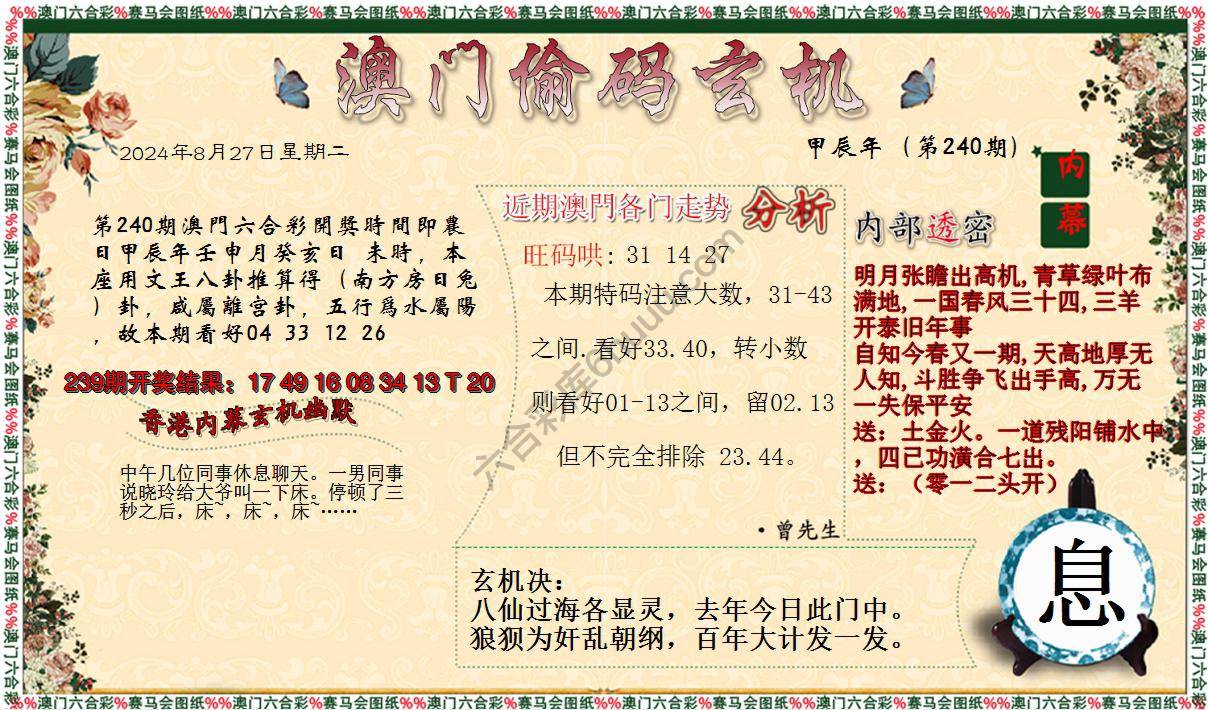 %%澳门六合彩%赛马会图纸%%澳门六合彩%赛马会图纸%%澳门六合彩%赛马会图纸%%澳门六合彩%赛马会图纸%%澳门六合彩%赛马会图纸%%澳门六合彩%赛马会图纸%%
澳门偷码玄机
2024年8月27日星期二
甲辰年（第240期）
内幕
第240期澳門六合彩開獎時間即農
日甲辰年壬申月癸亥日 未時，本
座用文王八卦推算得（南方房日兔
）卦，咸屬離宫卦，五行爲水屬陽
，故本期看好04 33 12 26
239期开奖结果：17 49 16 08 34 13 T 20
香港内幕玄机幽默
中午几位同事休息聊天。一男同事
说晓玲给大爷叫一下床。停顿了三
秒之后，床~，床~，床~……
近期澳門各门走势 分析
旺码哄: 31 14 27
本期特码注意大数，31-43
之间.看好33.40，转小数
则看好01-13之间，留02.13
但不完全排除 23.44。
·曾先生
内部透密
明月张瞻出高机,青草绿叶布
满地,一国春风三十四,三羊
开泰旧年事
自知今春又一期,天高地厚无
人知,斗胜争飞出手高,万无
一失保平安
送：土金火。一道残阳铺水中
，四已功潢合七出。
送：（零一二头开）
玄机决：
八仙过海各显灵，去年今日此门中。
狼狈为奸乱朝纲，百年大计发一发。
息
%%澳门六合彩%赛马会图纸%%澳门六合彩%赛马会图纸%%澳门六合彩%赛马会图纸%%澳门六合彩%赛马会图纸%%澳门六合彩%赛马会图纸%%澳门六合彩%赛马会图纸%%